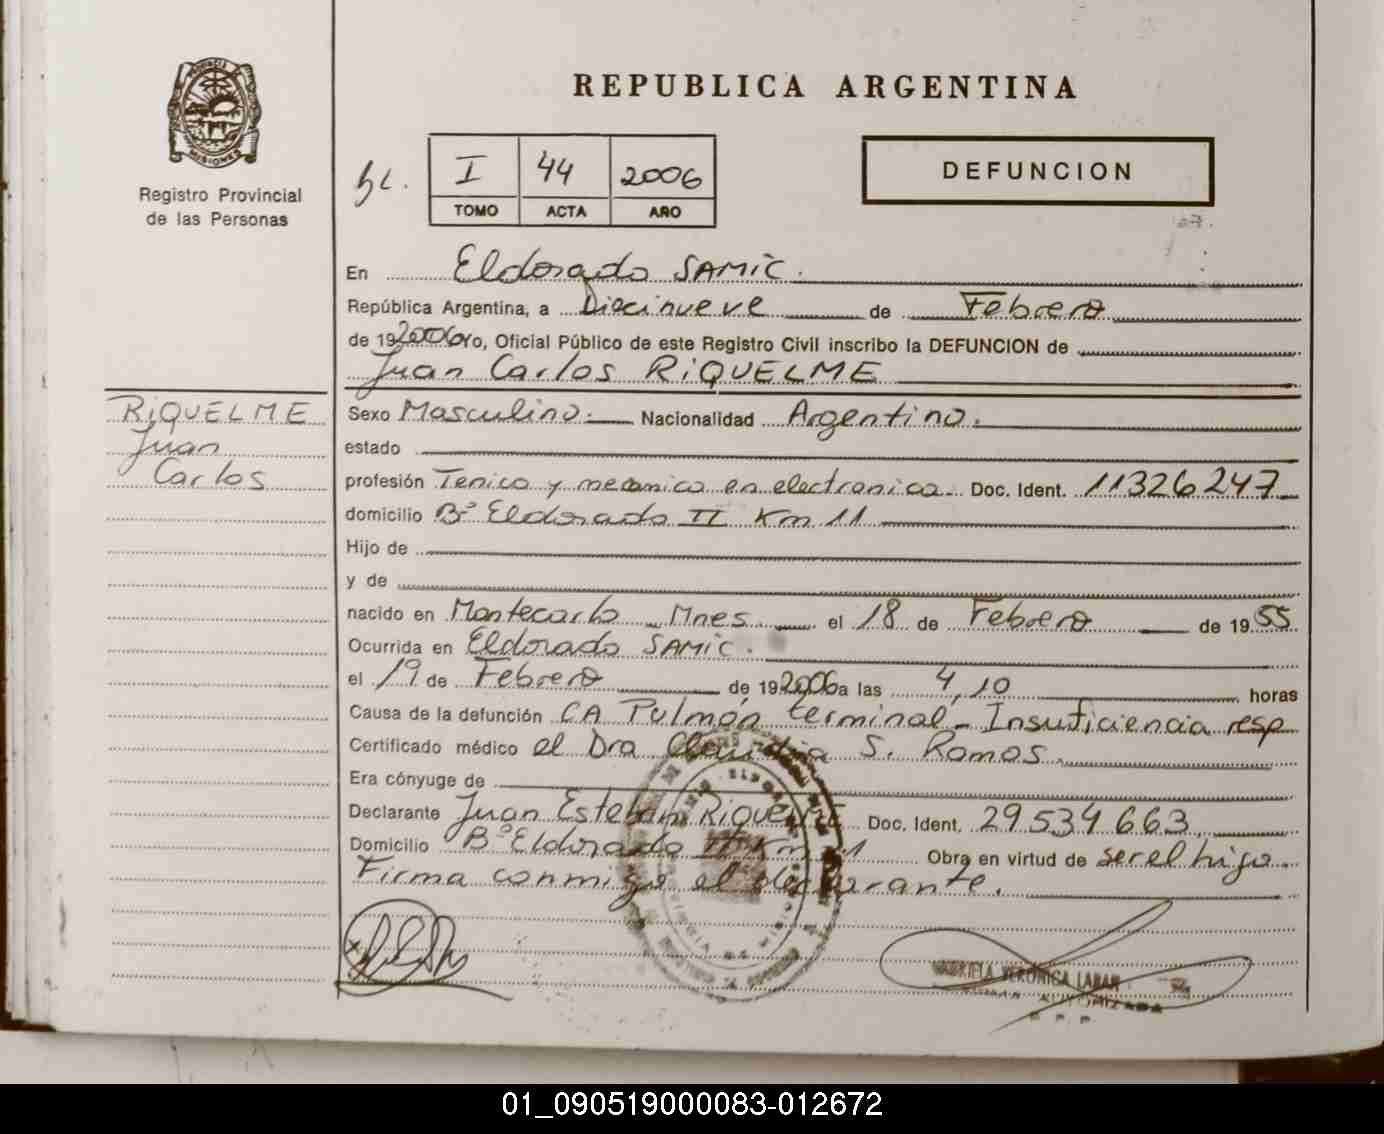 PROVINCIA
MISIONES
Registro Provincial
de las Personas
REPUBLICA ARGENTINA
I 44 2006
TOMO ACTA AÑO
DEFUNCION
En Eldorado SAMIC.
República Argentina, a Diecinueve de Febrero
de 19 2006 yo, Oficial Público de este Registro Civil inscribo la DEFUNCION de
Juan Carlos RIQUELME
RIQUELME
Juan
Carlos
Sexo Masculino. Nacionalidad Argentino.
estado
profesión Tenico y mecanico en electronica Doc. Ident. 11326247
domicilio Bº Eldorado II Km 11
Hijo de
y de
nacido en Montecarlo Mnes el 18 de Febrero de 1955
Ocurrida en Eldorado SAMIC.
el 19 de Febrero de 19 2006 a las 4,10 horas
Causa de la defunción CA Pulmón terminal - Insuficiencia resp
Certificado médico el Dra Claudia S. Ramos
Era cónyuge de
Declarante Juan Esteban Riquelme Doc. Ident. 29534663
Domicilio Bº Eldorado II Km 11 Obra en virtud de ser el hijo
Firma conmigo el declarante.
VERONICA
01_090519000083-012672